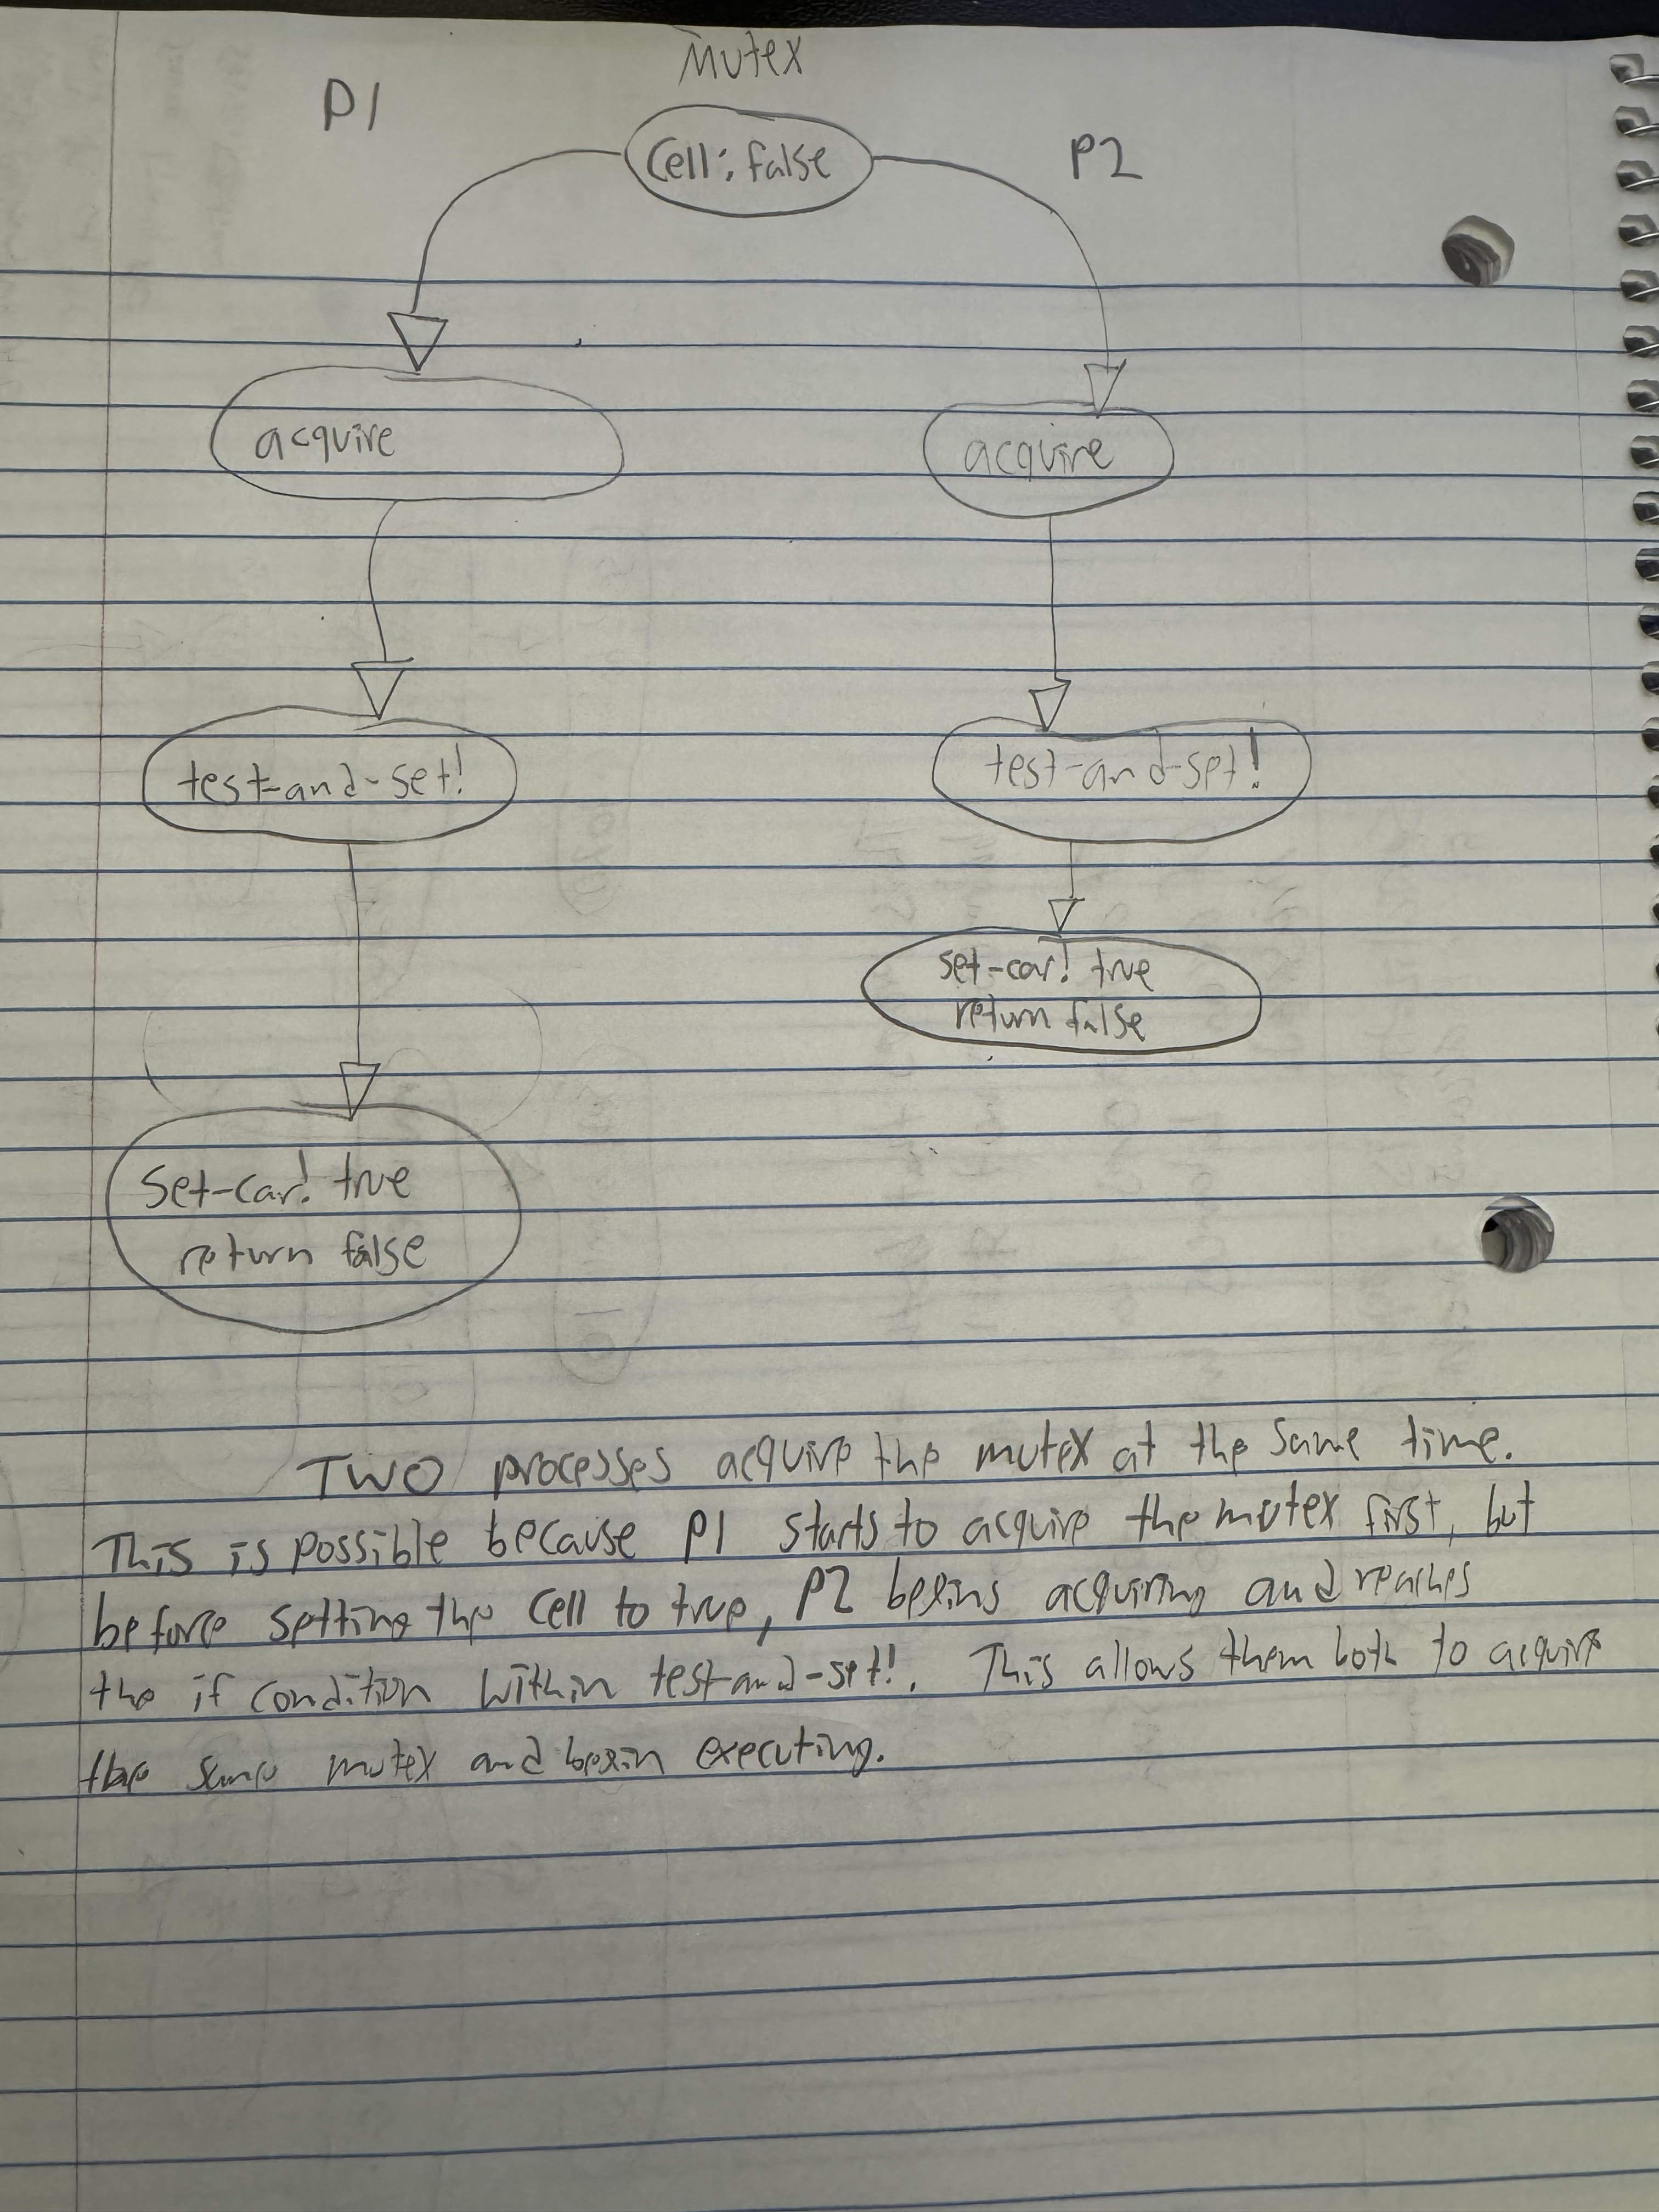 Mutex
P1
Cell: false
P2
acquire
acquire
test-and-set!
test-and-set!
set-car! true
return false
Set-car! true
return false
Two processes acquire the mutex at the same time.
This is possible because P1 starts to acquire the mutex first, but
before setting the cell to true, P2 begins acquiring and reaches
the if condition within test-and-set!. This allows them both to acquire
the same mutex and begin executing.